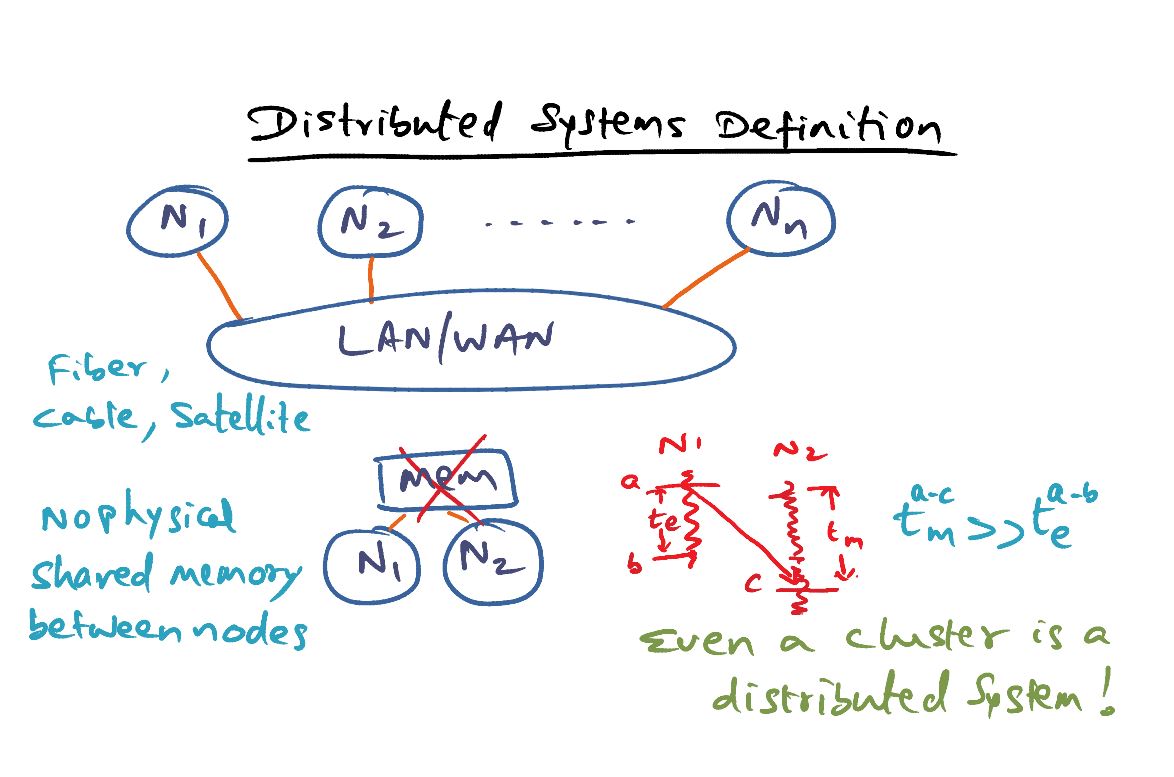 Distributed Systems Definition
N1 N2 ....... Nn
LAN/WAN
Fiber,
Cable, Satellite
Mem
N1 N2
No physical
shared memory
between nodes
N1 N2
a
te
b
tm
c
tm^a-c >> te^a-b
Even a cluster is a
distributed system!